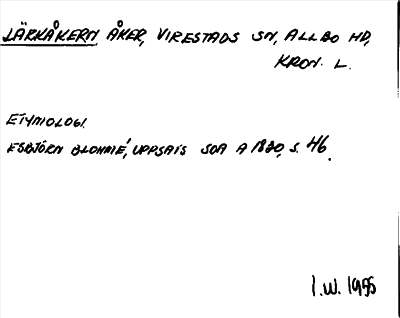 LÄRKÅKERN ÅKER, VIRESTADS SN, ALLBO HD,
KRON. L.
ETYMOLOGI.
ESBJÖRN BLOHMÉ, UPPSATS SOA A 1820, S. 46.
I.W. 1955